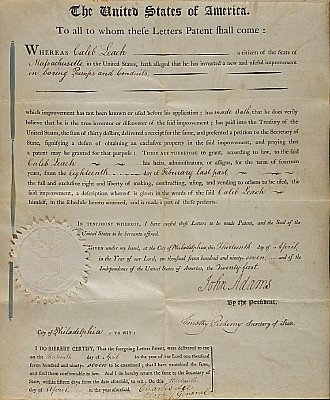 The United States of America.
To all to whom these Letters Patent shall come:
WHEREAS Caleb Leach a citizen of the State of
Massachusetts, in the United States, hath alleged that he has invented a new and useful improvement
in boring Pumps and Conduits,
which improvement has not been known or used before his application; has made Oath, that he does verily
believe that he is the true inventor or discoverer of the said improvement; has paid into the Treasury of the
United States, the sum of thirty dollars, delivered a receipt for the same, and presented a petition to the Secretary
of State, signifying a desire of obtaining an exclusive property in the said improvement, and praying that
a patent may be granted for that purpose: THESE ARE THEREFORE to grant, according to law, to the said
Caleb Leach his heirs, administrators, or assigns, for the term of fourteen
years, from the eighteenth day of February last past,
the full and exclusive right and liberty of making, constructing, using, and vending to others to be used, the
said improvement, a description whereof is given in the words of the said Caleb Leach
himself, in the schedule hereto annexed, and is made a part of these presents.
IN TESTIMONY WHEREOF, I have caused these Letters to be made Patent, and the Seal of the
United States to be hereunto affixed.
GIVEN under my hand, at the City of Philadelphia this Thirteenth day of April,
in the Year of our Lord, one thousand seven hundred and ninety seven and of the
Independence of the United States of America, the Twenty first.
John Adams
By the President,
Timothy Pickering Secretary of State.
City of Philadelphia, TO WIT:
I DO HEREBY CERTIFY, That the foregoing Letters Patent, were delivered to me
on the day of April in the year of our Lord one thousand
seven hundred and ninety seven to be examined; that I have examined the same,
and find them conformable to law. And I do hereby return the same to the Secretary of
State, within fifteen days from the date aforesaid, to wit: On this
day of April in the year aforesaid. Charles Lee
Attorney General